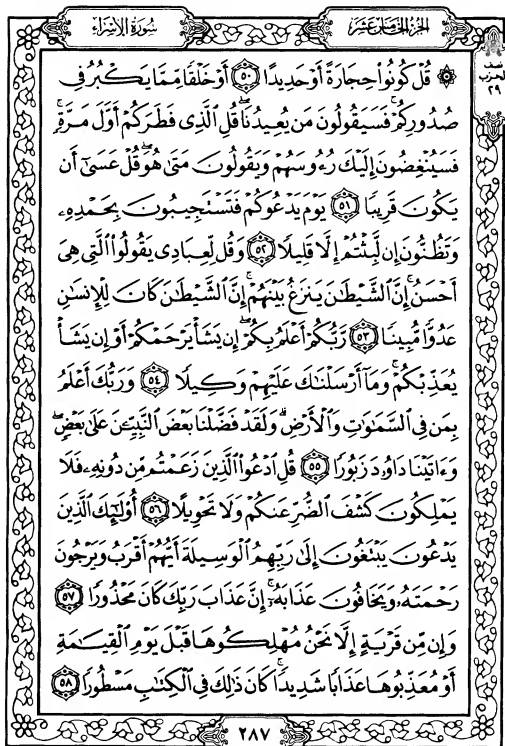 سُورَةُ الإِسْرَاءِ
الجُزْءُ الخَامِسَ عَشَرَ
نصف
الحزب
٢٩
۞ قُلْ كُونُوا۟ حِجَارَةً أَوْ حَدِيدًا ٥٠ أَوْ خَلْقًا مِّمَّا يَكْبُرُ فِى
صُدُورِكُمْ ۚ فَسَيَقُولُونَ مَن يُعِيدُنَا ۖ قُلِ ٱلَّذِى فَطَرَكُمْ أَوَّلَ مَرَّةٍ ۚ
فَسَيُنْغِضُونَ إِلَيْكَ رُءُوسَهُمْ وَيَقُولُونَ مَتَىٰ هُوَ ۖ قُلْ عَسَىٰٓ أَن
يَكُونَ قَرِيبًا ٥١ يَوْمَ يَدْعُوكُمْ فَتَسْتَجِيبُونَ بِحَمْدِهِۦ
وَتَظُنُّونَ إِن لَّبِثْتُمْ إِلَّا قَلِيلًا ٥٢ وَقُل لِّعِبَادِى يَقُولُوا۟ ٱلَّتِى هِىَ
أَحْسَنُ ۚ إِنَّ ٱلشَّيْطَـٰنَ يَنزَغُ بَيْنَهُمْ ۚ إِنَّ ٱلشَّيْطَـٰنَ كَانَ لِلْإِنسَـٰنِ
عَدُوًّا مُّبِينًا ٥٣ رَّبُّكُمْ أَعْلَمُ بِكُمْ ۖ إِن يَشَأْ يَرْحَمْكُمْ أَوْ إِن يَشَأْ
يُعَذِّبْكُمْ ۚ وَمَآ أَرْسَلْنَـٰكَ عَلَيْهِمْ وَكِيلًا ٥٤ وَرَبُّكَ أَعْلَمُ
بِمَن فِى ٱلسَّمَـٰوَٰتِ وَٱلْأَرْضِ ۗ وَلَقَدْ فَضَّلْنَا بَعْضَ ٱلنَّبِيِّـۧنَ عَلَىٰ بَعْضٍ ۖ
وَءَاتَيْنَا دَاوُۥدَ زَبُورًا ٥٥ قُلِ ٱدْعُوا۟ ٱلَّذِينَ زَعَمْتُم مِّن دُونِهِۦ فَلَا
يَمْلِكُونَ كَشْفَ ٱلضُّرِّ عَنكُمْ وَلَا تَحْوِيلًا ٥٦ أُو۟لَـٰٓئِكَ ٱلَّذِينَ
يَدْعُونَ يَبْتَغُونَ إِلَىٰ رَبِّهِمُ ٱلْوَسِيلَةَ أَيُّهُمْ أَقْرَبُ وَيَرْجُونَ
رَحْمَتَهُۥ وَيَخَافُونَ عَذَابَهُۥٓ ۚ إِنَّ عَذَابَ رَبِّكَ كَانَ مَحْذُورًا ٥٧
وَإِن مِّن قَرْيَةٍ إِلَّا نَحْنُ مُهْلِكُوهَا قَبْلَ يَوْمِ ٱلْقِيَـٰمَةِ
أَوْ مُعَذِّبُوهَا عَذَابًا شَدِيدًا ۚ كَانَ ذَٰلِكَ فِى ٱلْكِتَـٰبِ مَسْطُورًا ٥٨
٢٨٧